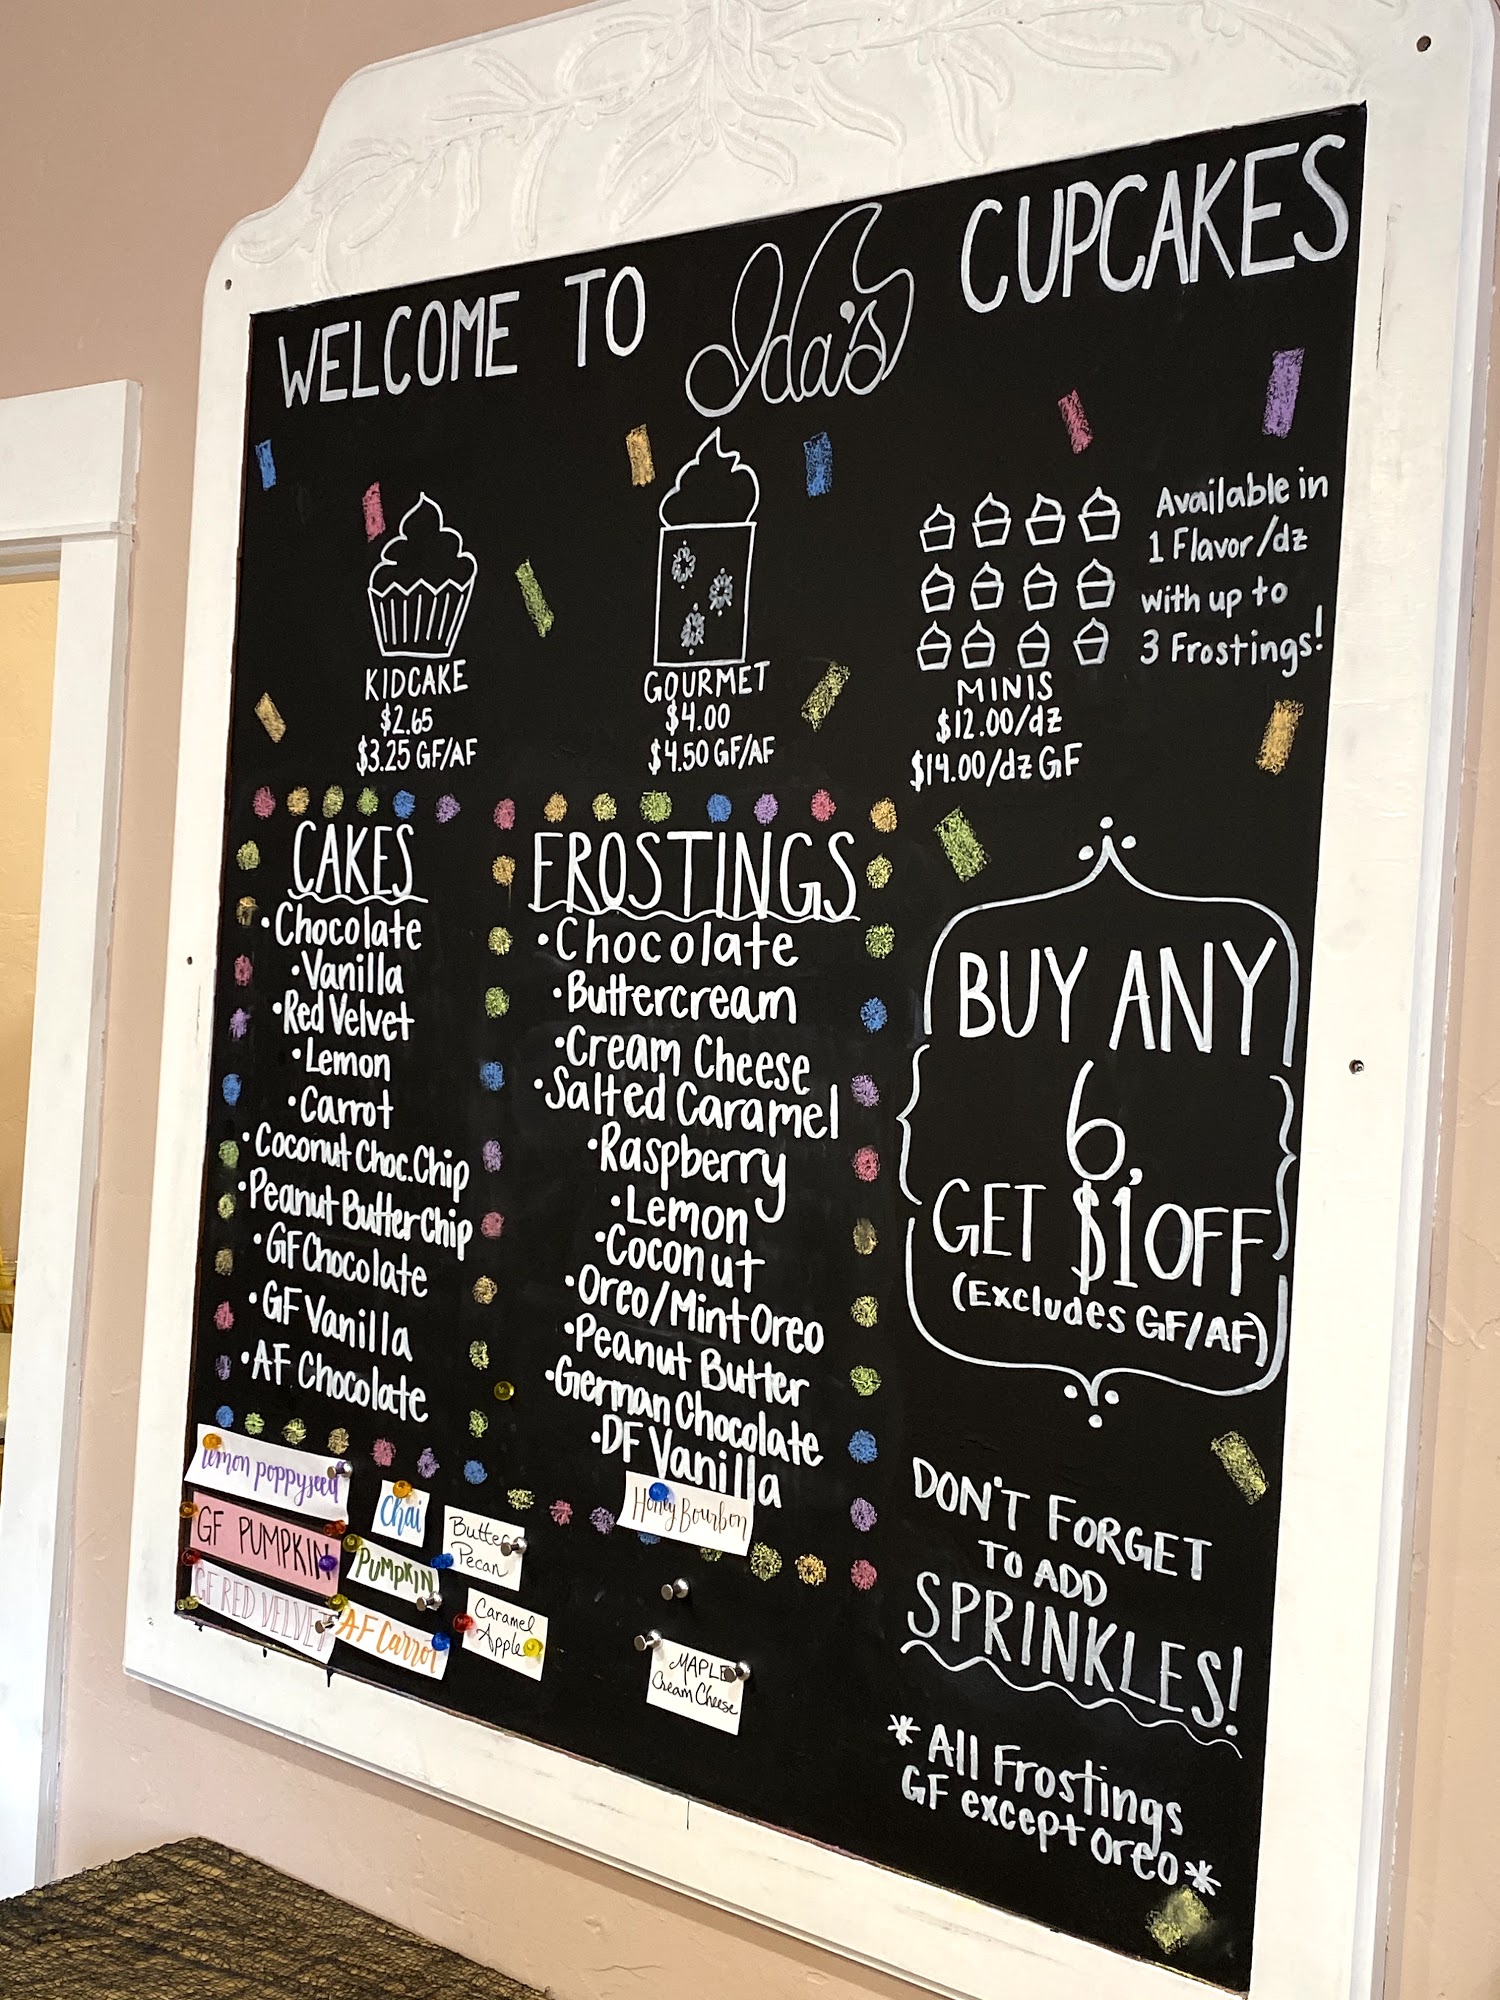 WELCOME TO Ida's CUPCAKES
KIDCAKE
$2.65
$3.25 GF/AF
GOURMET
$4.00
$4.50 GF/AF
MINIS
$12.00/dz
$14.00/dz GF
Available in
1 Flavor/dz
with up to
3 Frostings!
CAKES
•Chocolate
•Vanilla
•Red Velvet
•Lemon
•Carrot
•Coconut Choc.Chip
•Peanut Butter Chip
•GF Chocolate
•GF Vanilla
•AF Chocolate
lemon poppyseed
GF PUMPKIN
GF RED VELVET
Chai
PUMPKIN
AF Carrot
Butter
Pecan
Caramel
Apple
FROSTINGS
•Chocolate
•Buttercream
•Cream Cheese
•Salted Caramel
•Raspberry
•Lemon
•Coconut
•Oreo/Mint Oreo
•Peanut Butter
•German Chocolate
•DF Vanilla
Honey Bourbon
MAPLE
Cream Cheese
BUY ANY
6,
GET $1 OFF
(Excludes GF/AF)
DON'T FORGET
TO ADD
SPRINKLES!
*All Frostings
GF except oreo*